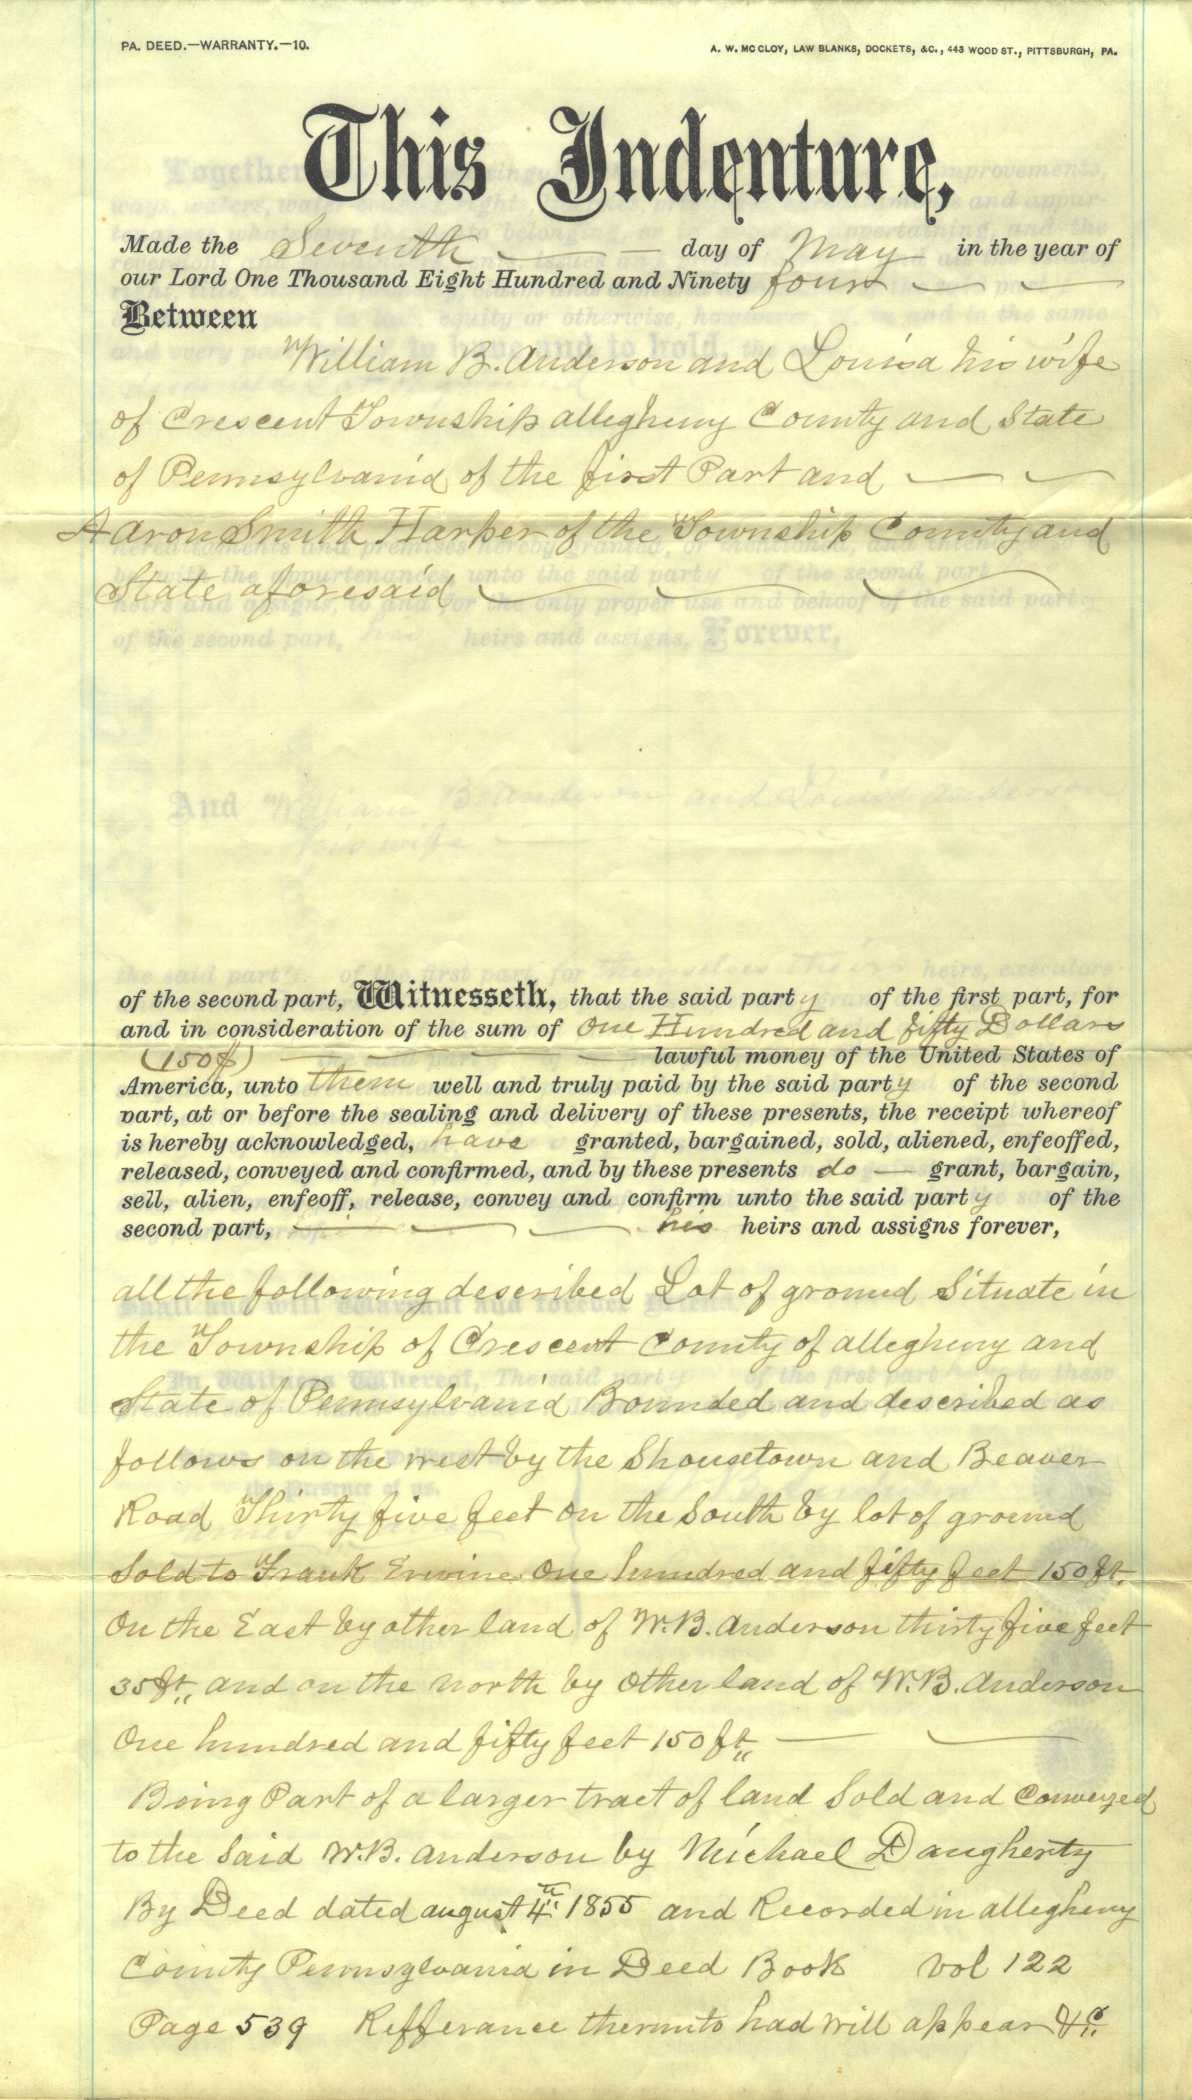 PA. DEED.—WARRANTY.—10.
A. W. MC CLOY, LAW BLANKS, DOCKETS, &C., 443 WOOD ST., PITTSBURGH, PA.
This Indenture,
Made the Seventh day of May in the year of
our Lord One Thousand Eight Hundred and Ninety four
Between
William B. Anderson and Louisa his wife
of Crescent Township allegheny County and State
of Pennsylvania of the first Part and
Aaron Smith Harper of the Township County and
State aforesaid
of the second part, Witnesseth, that the said party of the first part, for
and in consideration of the sum of One Hundred and fifty Dollars
(150$) lawful money of the United States of
America, unto them well and truly paid by the said party of the second
part, at or before the sealing and delivery of these presents, the receipt whereof
is hereby acknowledged, have granted, bargained, sold, aliened, enfeoffed,
released, conveyed and confirmed, and by these presents do grant, bargain,
sell, alien, enfeoff, release, convey and confirm unto the said party of the
second part, his heirs and assigns forever,
all the following described Lot of ground Situate in
the Township of Crescent County of allegheny and
State of Pennsylvania Bounded and described as
follows on the west by the Shousetown and Beaver
Road Thirty five feet on the South by lot of ground
Sold to Frank Erwine One hundred and fifty feet 150 ft.
On the East by other land of W.B. Anderson thirty five feet
35 ft. and on the north by Other land of W.B. Anderson
One hundred and fifty feet 150 ft.
Being Part of a larger tract of land Sold and Conveyed
to the Said W.B. Anderson by Michael Daugherty
By Deed dated august 4th 1855 and Recorded in allegheny
County Pennsylvania in Deed Book Vol 122
Page 539 Refferance thereunto had will appear &c.